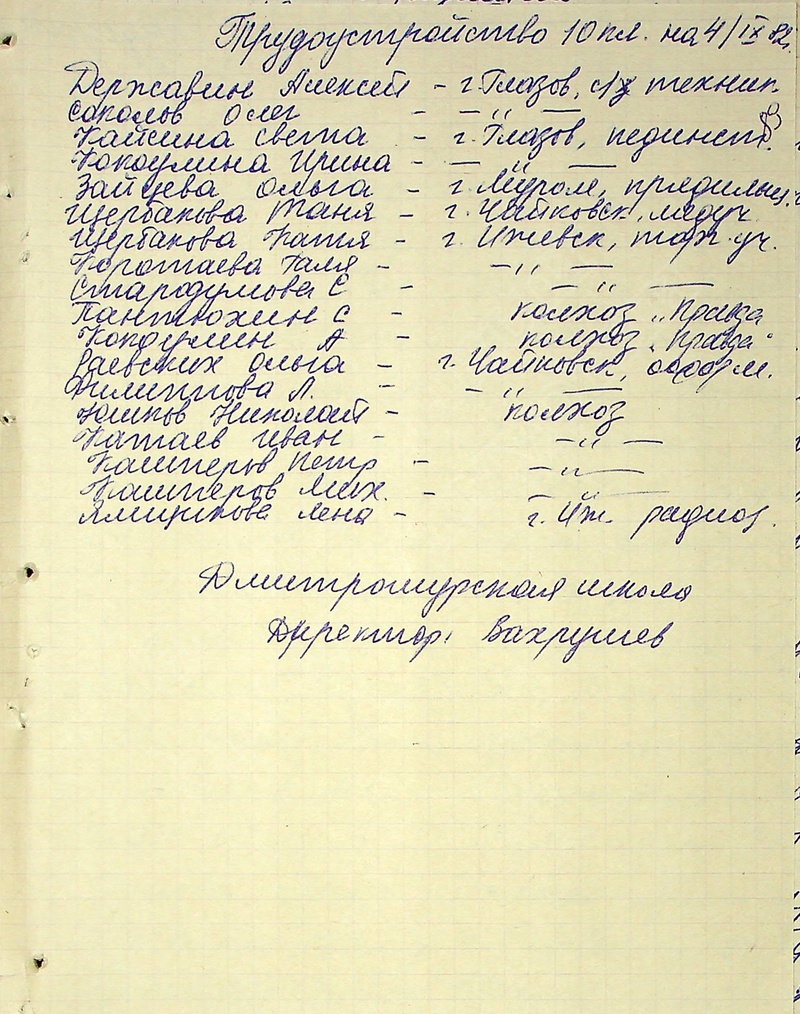 Трудоустройство 10 кл. на 4/IX 82г.
Державин Алексей - г. Глазов, с/х техник.
Соколов Олег - —"—
Кайсина Света - г. Глазов, пединст.
Кокоулина Ирина - —"—
Зайцева Ольга - г. Муром, прядильщ.
Щербакова Таня - г. Чайковск, медуч.
Щербакова Катя - г. Ижевск, торг. уч.
Коротаева Галя - —"—
Стародумова С - —"—
Пантюхин С - колхоз "Правда
Кокоулин А - колхоз "Правда"
Раевских Ольга - г. Чайковск,
Филиппова Л. - —"—
Юшков Николай - колхоз
Катаев Иван - —"—
Кашперов Петр - —"—
Кашперов Мих. - —"—
Ямщикова Лена - г. Иж. радиоз.
Дмитрошурская школа
Директор: Вахрушев